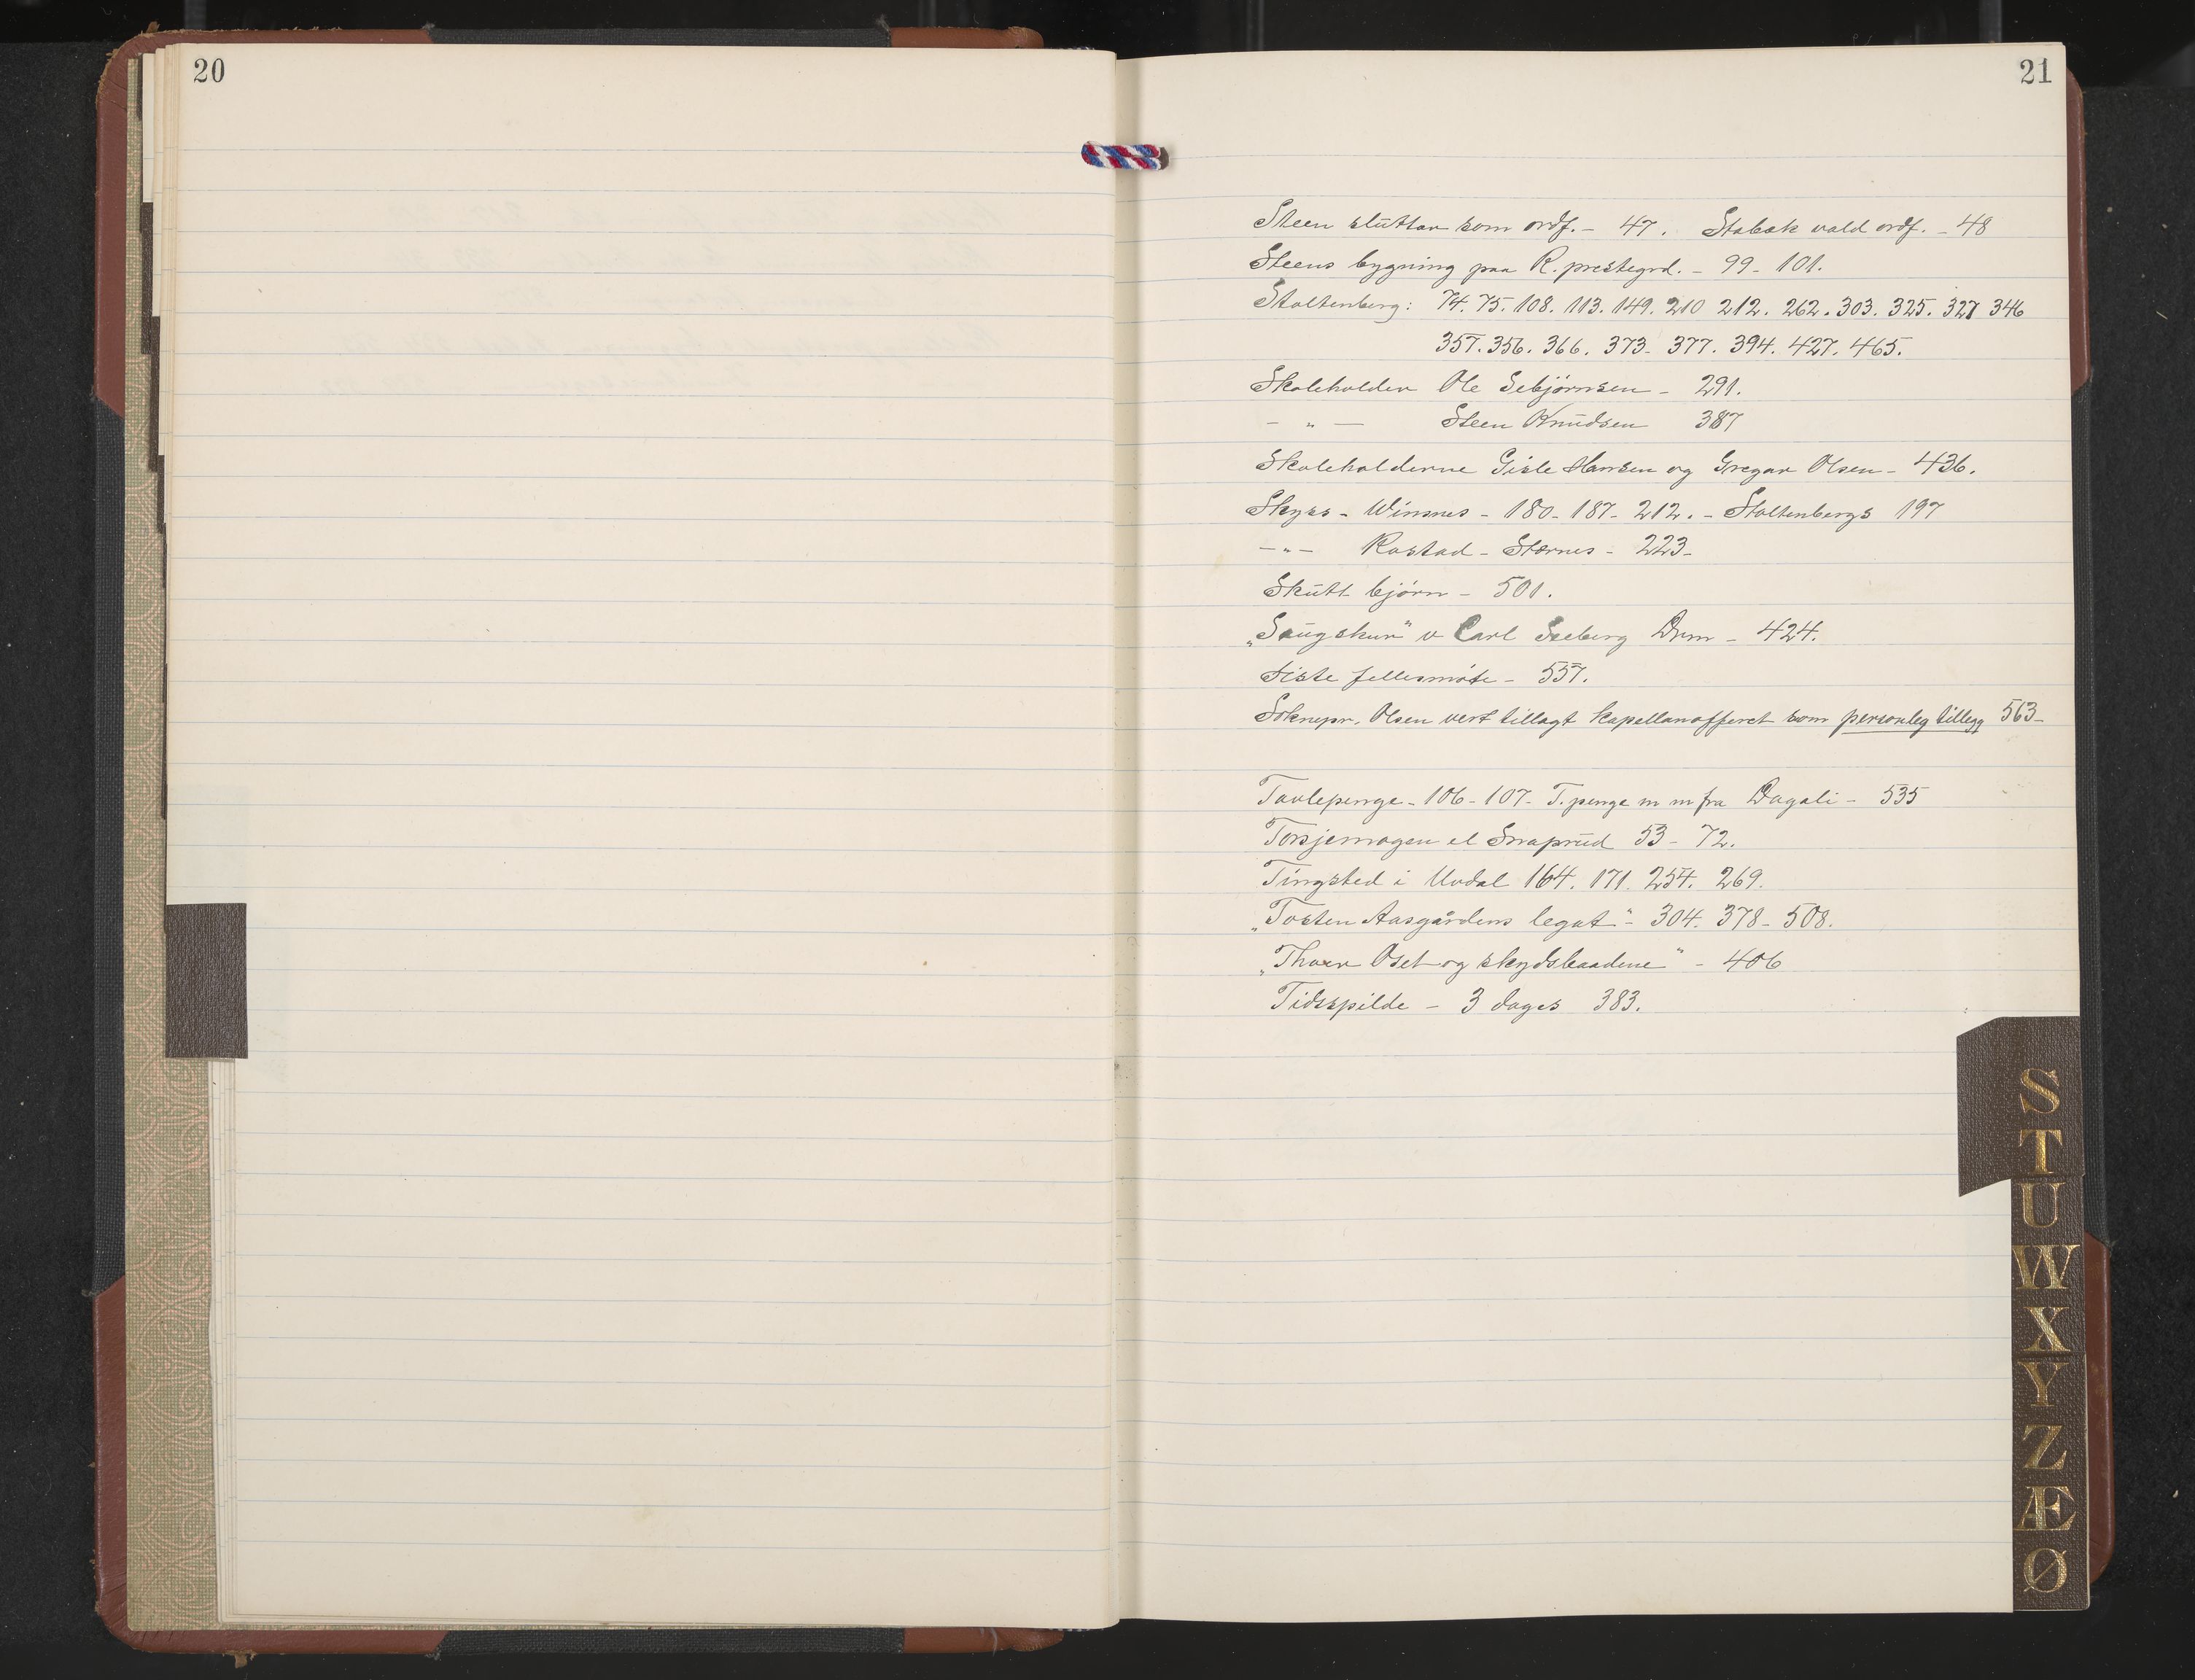 20
21
Steen sluttar som ordf. - 47. Stabæk vald ordf. - 48
Steens bygning paa R. prestegrd. - 99 - 101.
Stoltenberg: 74. 75. 108. 113. 149. 210 212. 262. 303. 325. 327 346
357. 356. 366. 373 - 377. 394. 427. 465.
Skoleholder Ole Sebjörnsen - 291.
- " - Steen Knudsen 387
Skoleholderne Gisle Hansen og Gregar Olsen - 436.
Skyss - Winsnes - 180 - 187 - 212. - Stoltenbergs 197
- " - Rostad - Stornes - 223 -
Skutt björn - 501.
„Saugskur" v Carl Seeberg Drm - 424.
Siste fellesmöte - 557.
Soknepr. Olsen vert tillagt kapellanofferet som personleg tillegg 563 -
Tavlepenge - 106 - 107 - T. penge m m fra Dagali - 535
Torsjemogen el Snaprud 53 - 72.
Tingsted i Uvdal 164. 171. 254. 269.
„Tosten Aasgårdens legat" - 304. 378 - 508.
„Thorr Oset og skydsbaadene" - 406
Tidsspilde - 3 dages 383.
S
T
U
W
X
Y
Z
Æ
Ø